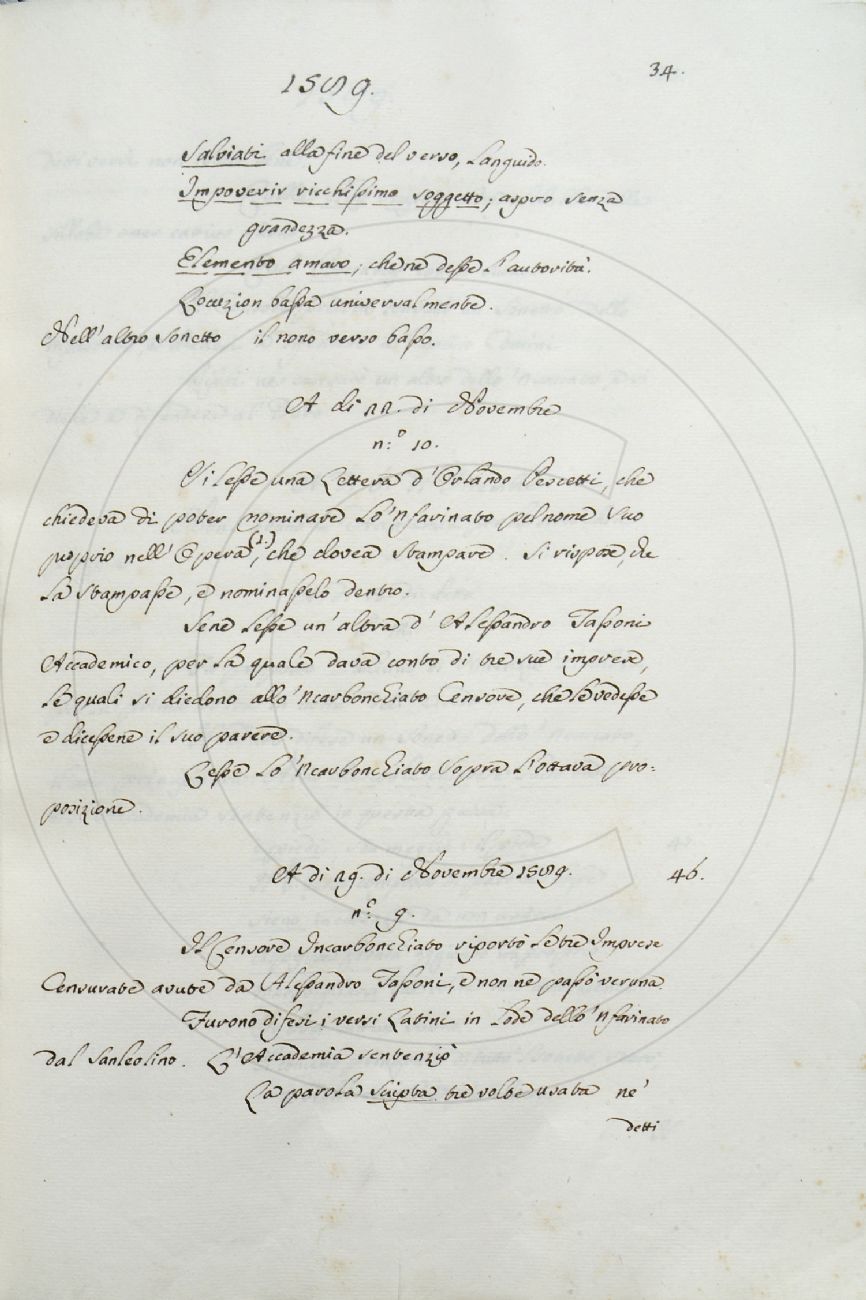 34.
1589.
Salviati alla fine del verso, languido.
Impoverir ricchissimo soggetto; aspro senza
grandezza.
Elemento amaro; che ne desse l'autorità.
Locuzion bassa universalmente.
Nell'altro sonetto il nono verso basso.
A di 22. di Novembre
n:o 10.
Si lesse una Lettera d'Orlando Pescetti, che
chiedeva di poter nominare lo 'nfarinato pel nome suo
proprio nell'Opera(1.), che dovea stampare. Si rispose, che
la stampasse, e nominasselo dentro.
Sene lesse un'altra d'Alessandro Tassoni
Accademico, per la quale dava conto di tre sue imprese,
le quali si diedono allo 'ncarbonchiato Censore, che le vedesse
e dicessene il suo parere.
Lesse lo 'ncarbonchiato sopra l'ottava pro:
posizione.
A di 29. di Novembre 1589. 46.
n:o 9.
Il Censore Incarbonchiato riportò le tre Imprese
Censurate avute da Alessandro Tassoni, e non ne passò veruna.
Furono difesi i versi Latini in lode dello 'nfarinato
dal Sanleolino. L'Accademia sentenziò
La parola scripta tre volte usata ne'
detti